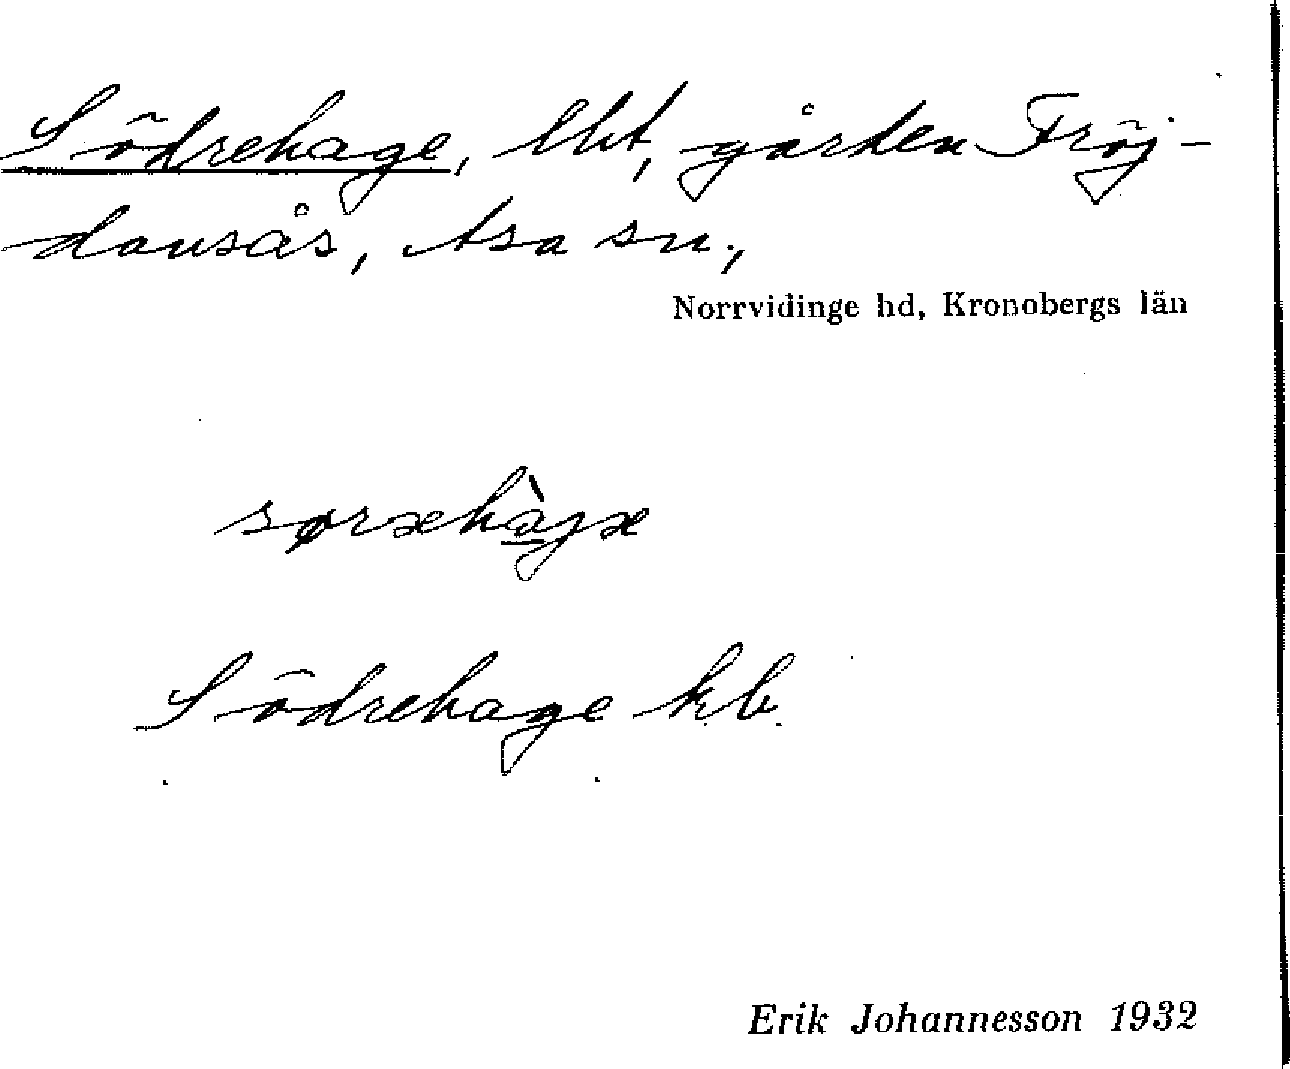 Södrehage, lht, gården Fröj-
dansås, Asa sn,
Norrvidinge hd, Kronobergs län
søræhàgæ
Södrehage kb.
Erik Johannesson 1932